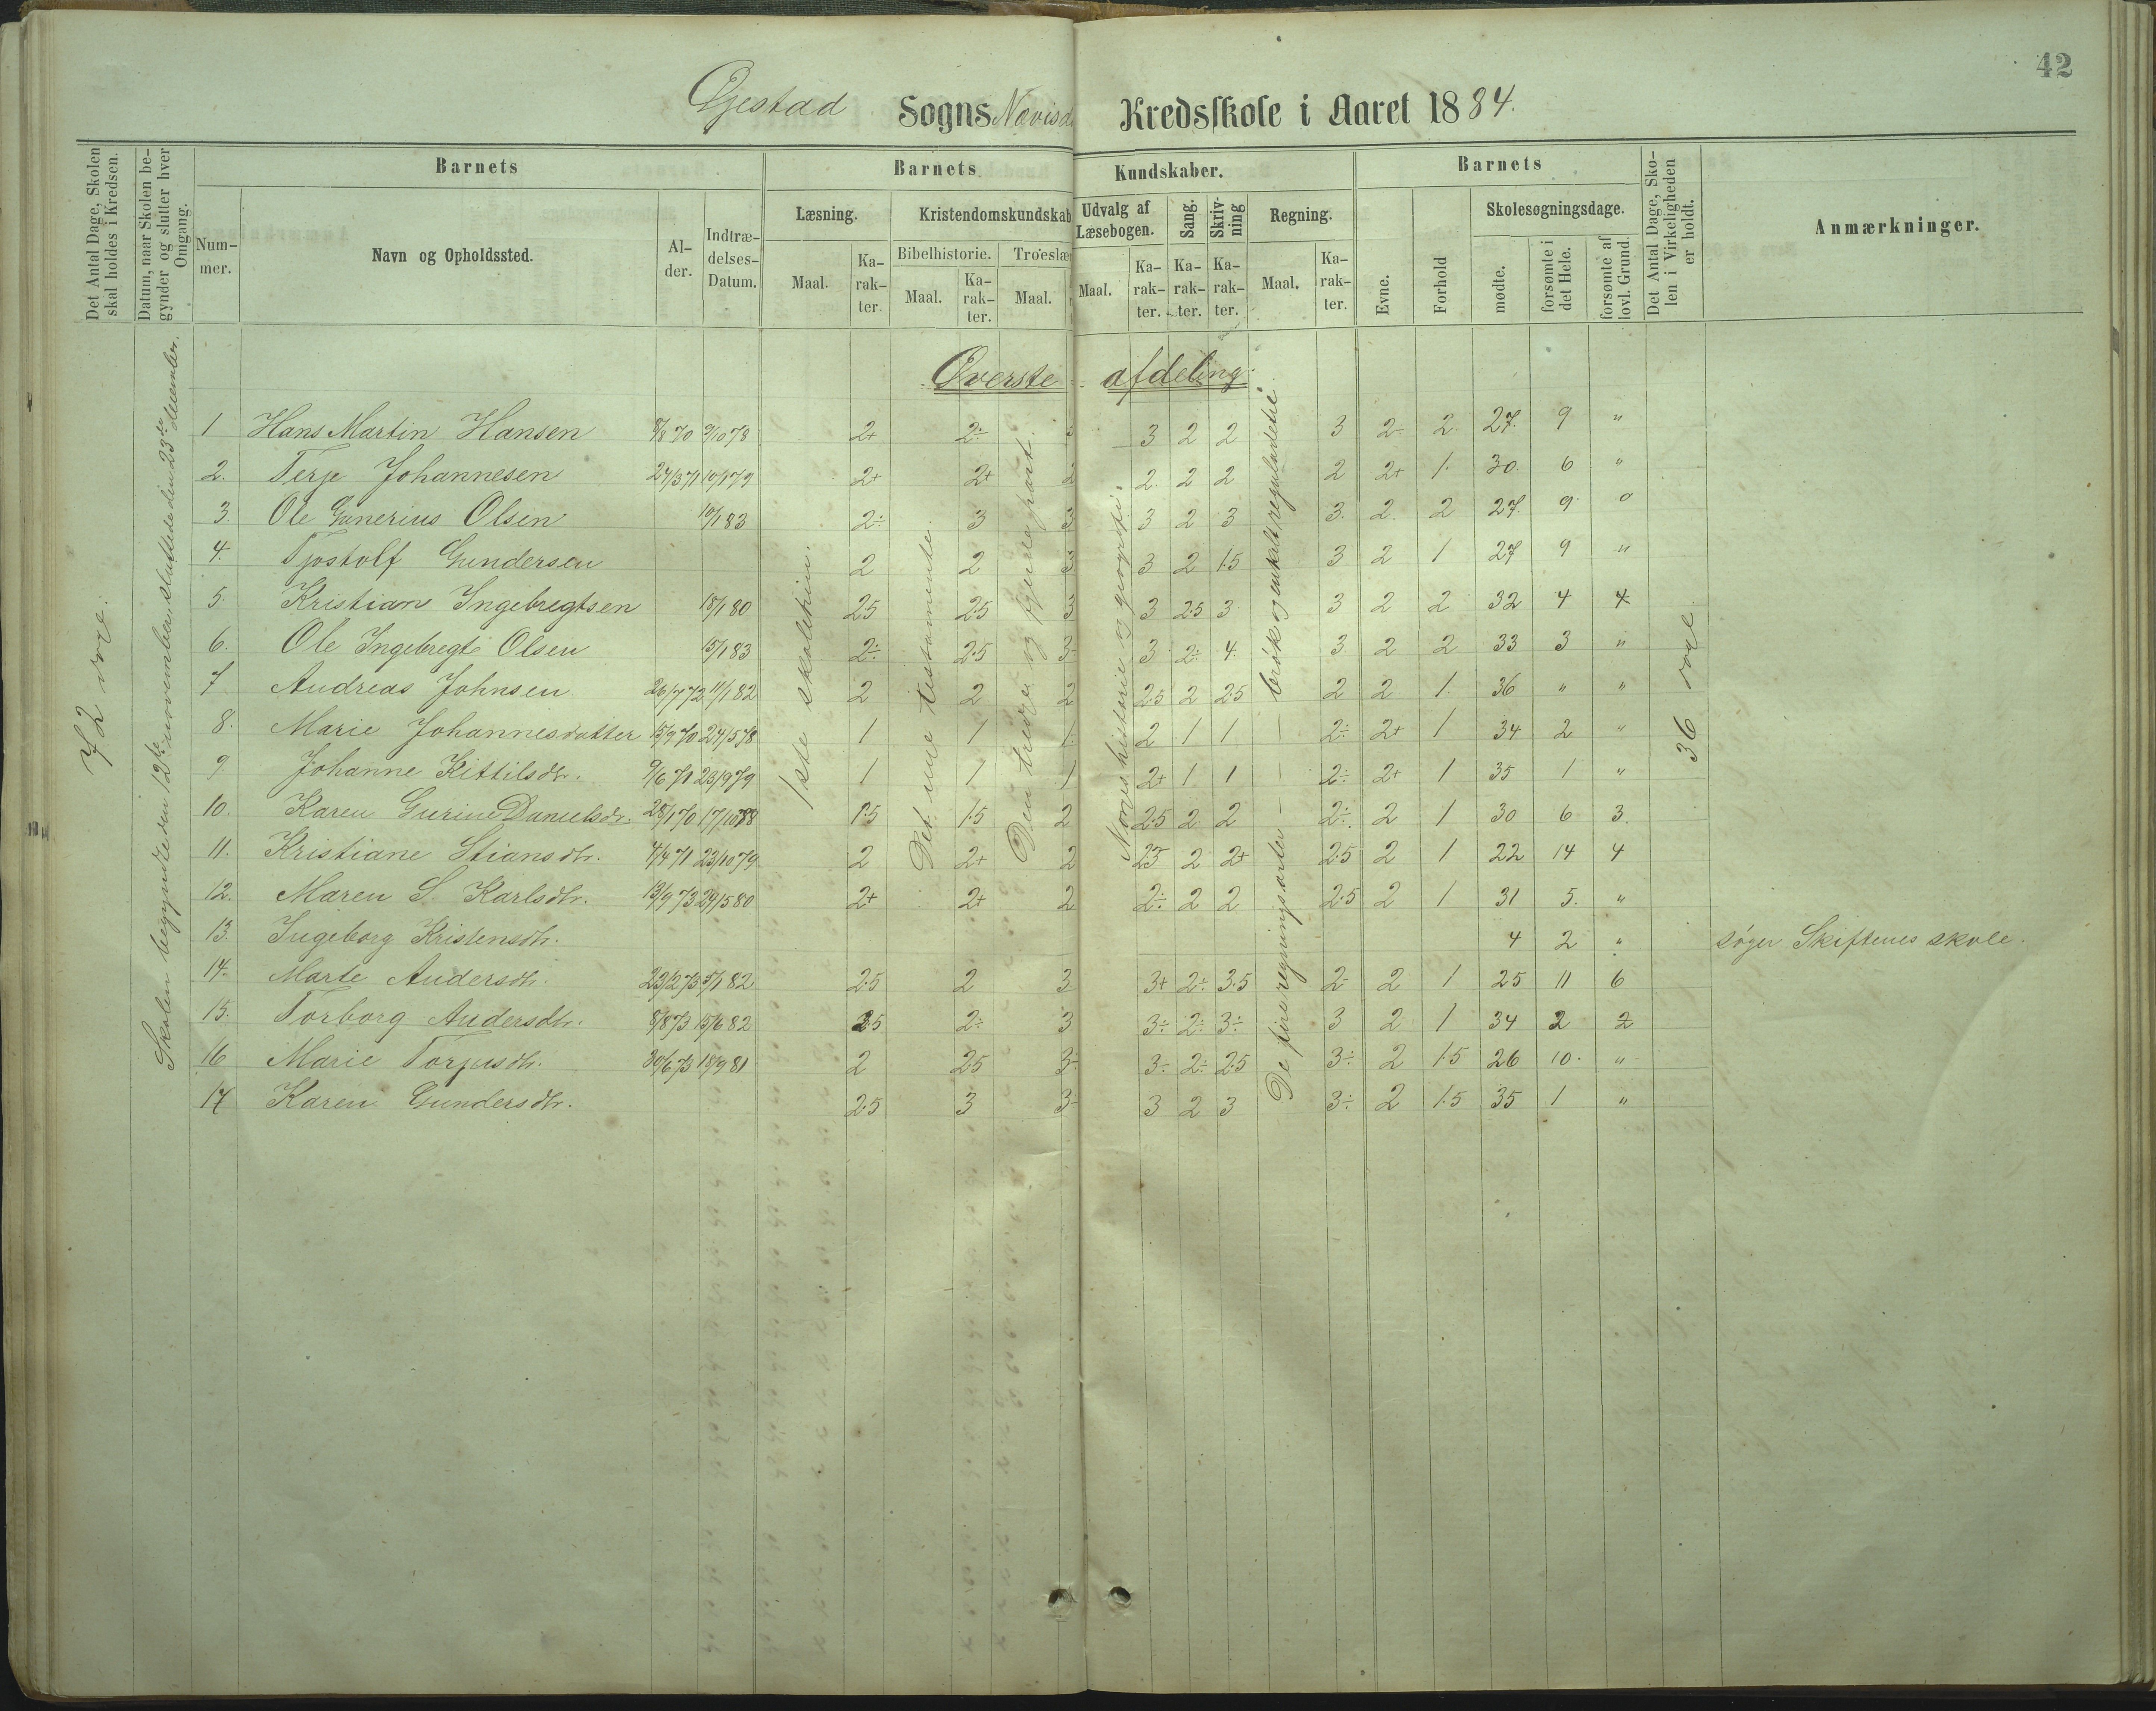 42
Øjestad Sogns Nævisd Kredsskole i Aaret 1884.
Det Antal Dage, Skolen skal holdes i Kredsen.
Datum, naar Skolen begynder og slutter hver Omgang.
Barnets
Nummer.
Navn og Opholdssted.
Alder.
Indtrædelses-Datum.
Barnets Kundskaber.
Læsning.
Maal.
Karakter.
Kristendomskundskab
Bibelhistorie.
Maal.
Karakter.
Troeslær
Maal.
Udvalg af Læsebogen.
Maal.
Karakter.
Sang.
Karakter.
Skrivning
Karakter.
Regning.
Maal.
Karakter.
Barnets
Evne.
Forhold
Skolesøgningsdage.
mødte.
forsømte i det Hele.
forsømte af lovl. Grund.
Det Antal Dage, Skolen i Virkeligheden er holdt.
Anmærkninger.
72 dage.
Skolen begyndte den 12te november, sluttede den 23de december.
Øverste afdeling.
1ste skolethrin.
Det nye testamente.
Den tredie og fjerde part.
Norges historie og geografi.
De fire regningsarter — brøk og enkelt reguladetri
36 dage
1 Hans Martin Hansen 8/8 70 9/10 78 2+ 2÷ 3 3 2 2 3 2÷ 2. 27. 9 "
2. Terje Johannesen 24/3 71 10/1 79 2+ 2+ 2 2. 2 2 2 2+ 1. 30. 6 "
3. Ole Gunerius Olsen 10/1 83 2÷ 3 3 3 2 3 3. 2. 2 27. 9. "
4. Tjostolf Gundersen 2 2 3 3 2 1.5 3 2 1 27 9 "
5. Kristian Ingebregtsen 18/1 80 2.5 2.5 3 3 2.5 3 3 2 2 32 4 4
6. Ole Ingebregt Olsen 15/1 83 2÷ 2.5 3÷ 3 2÷ 4. 3 2 2 33 3 "
7 Andreas Johnsen 26/7 72 11/1 82 2 2 2 2.5 2 2.5 2 2 1. 36 " "
8. Marie Johannesdatter 15/9 70 24/5 78 1 1 1. 2 1 1 2÷ 2+ 1 34 2 "
9. Johanne Kittilsdtr. 9/6 71 23/9 79 1 1 1 2+ 1 1 2÷ 2+ 1 35 1 "
10. Karen Gurine Danielsdr. 28/1 70 17/10 78 1.5 1.5 2 2.5 2 2 2÷ 2 1 30 6 3.
11. Kristiane Stiansdtr. 4/4 71 23/10 79 2 2+ 2 2.5 2 2+ 2.5 2 1 22 14 4
12. Maren S. Karlsdtr. 13/9 73 29/5 80 2+ 2+ 2 2÷ 2 2 2.5 2 1 31 5. "
13. Ingeborg Kristensdtr. 4 2 " søger Skiftenes skole.
14. Marte Andersdtr. 23/2 73 5/1 82 2.5 2 3 3+ 2÷ 3.5 2÷ 2 1 25 11 6
15. Torborg Andersdtr. 8/8 73 15/6 82 2.5 2÷ 3 3÷ 2÷ 3÷ 3 2 1 34 2 2
16 Marie Torjusdtr. 30/6 73 19/9 81 2 2.5 3÷ 3÷ 2÷ 2.5 3÷ 2 1.5 26 10. "
17 Karen Gundersdtr. 2.5 3 3÷ 3 2 3 3÷ 2 1.5 35 1 "